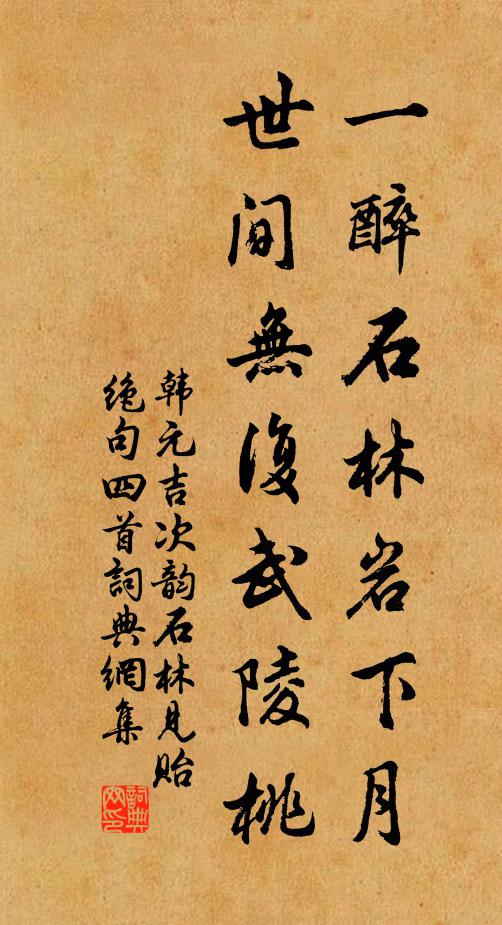 一醉石林岩下月
世间無復武陵桃
韩元吉次韵石林見貽
絶句四首詞典網集
詞典网印